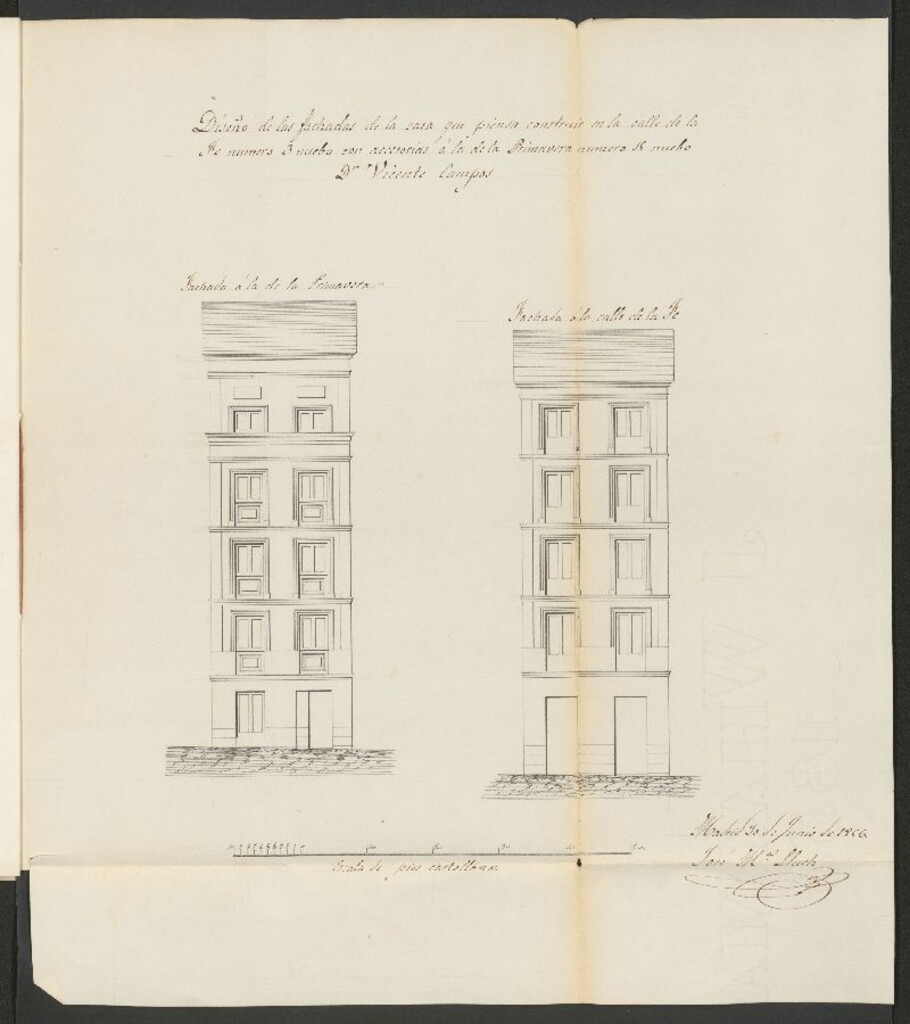 Diseño de las fachadas de la casa que piensa construir en la calle de la
Fe numero 3 nuebo con accesorias á la de la Primavera numero 18 nuebo
Dn Vicente Campos
Fachada á la de la Primavera
Fachada á la calle de la Fe
Madrid 30 de Junio de 1866
José Ma
Escala de pies castellanos